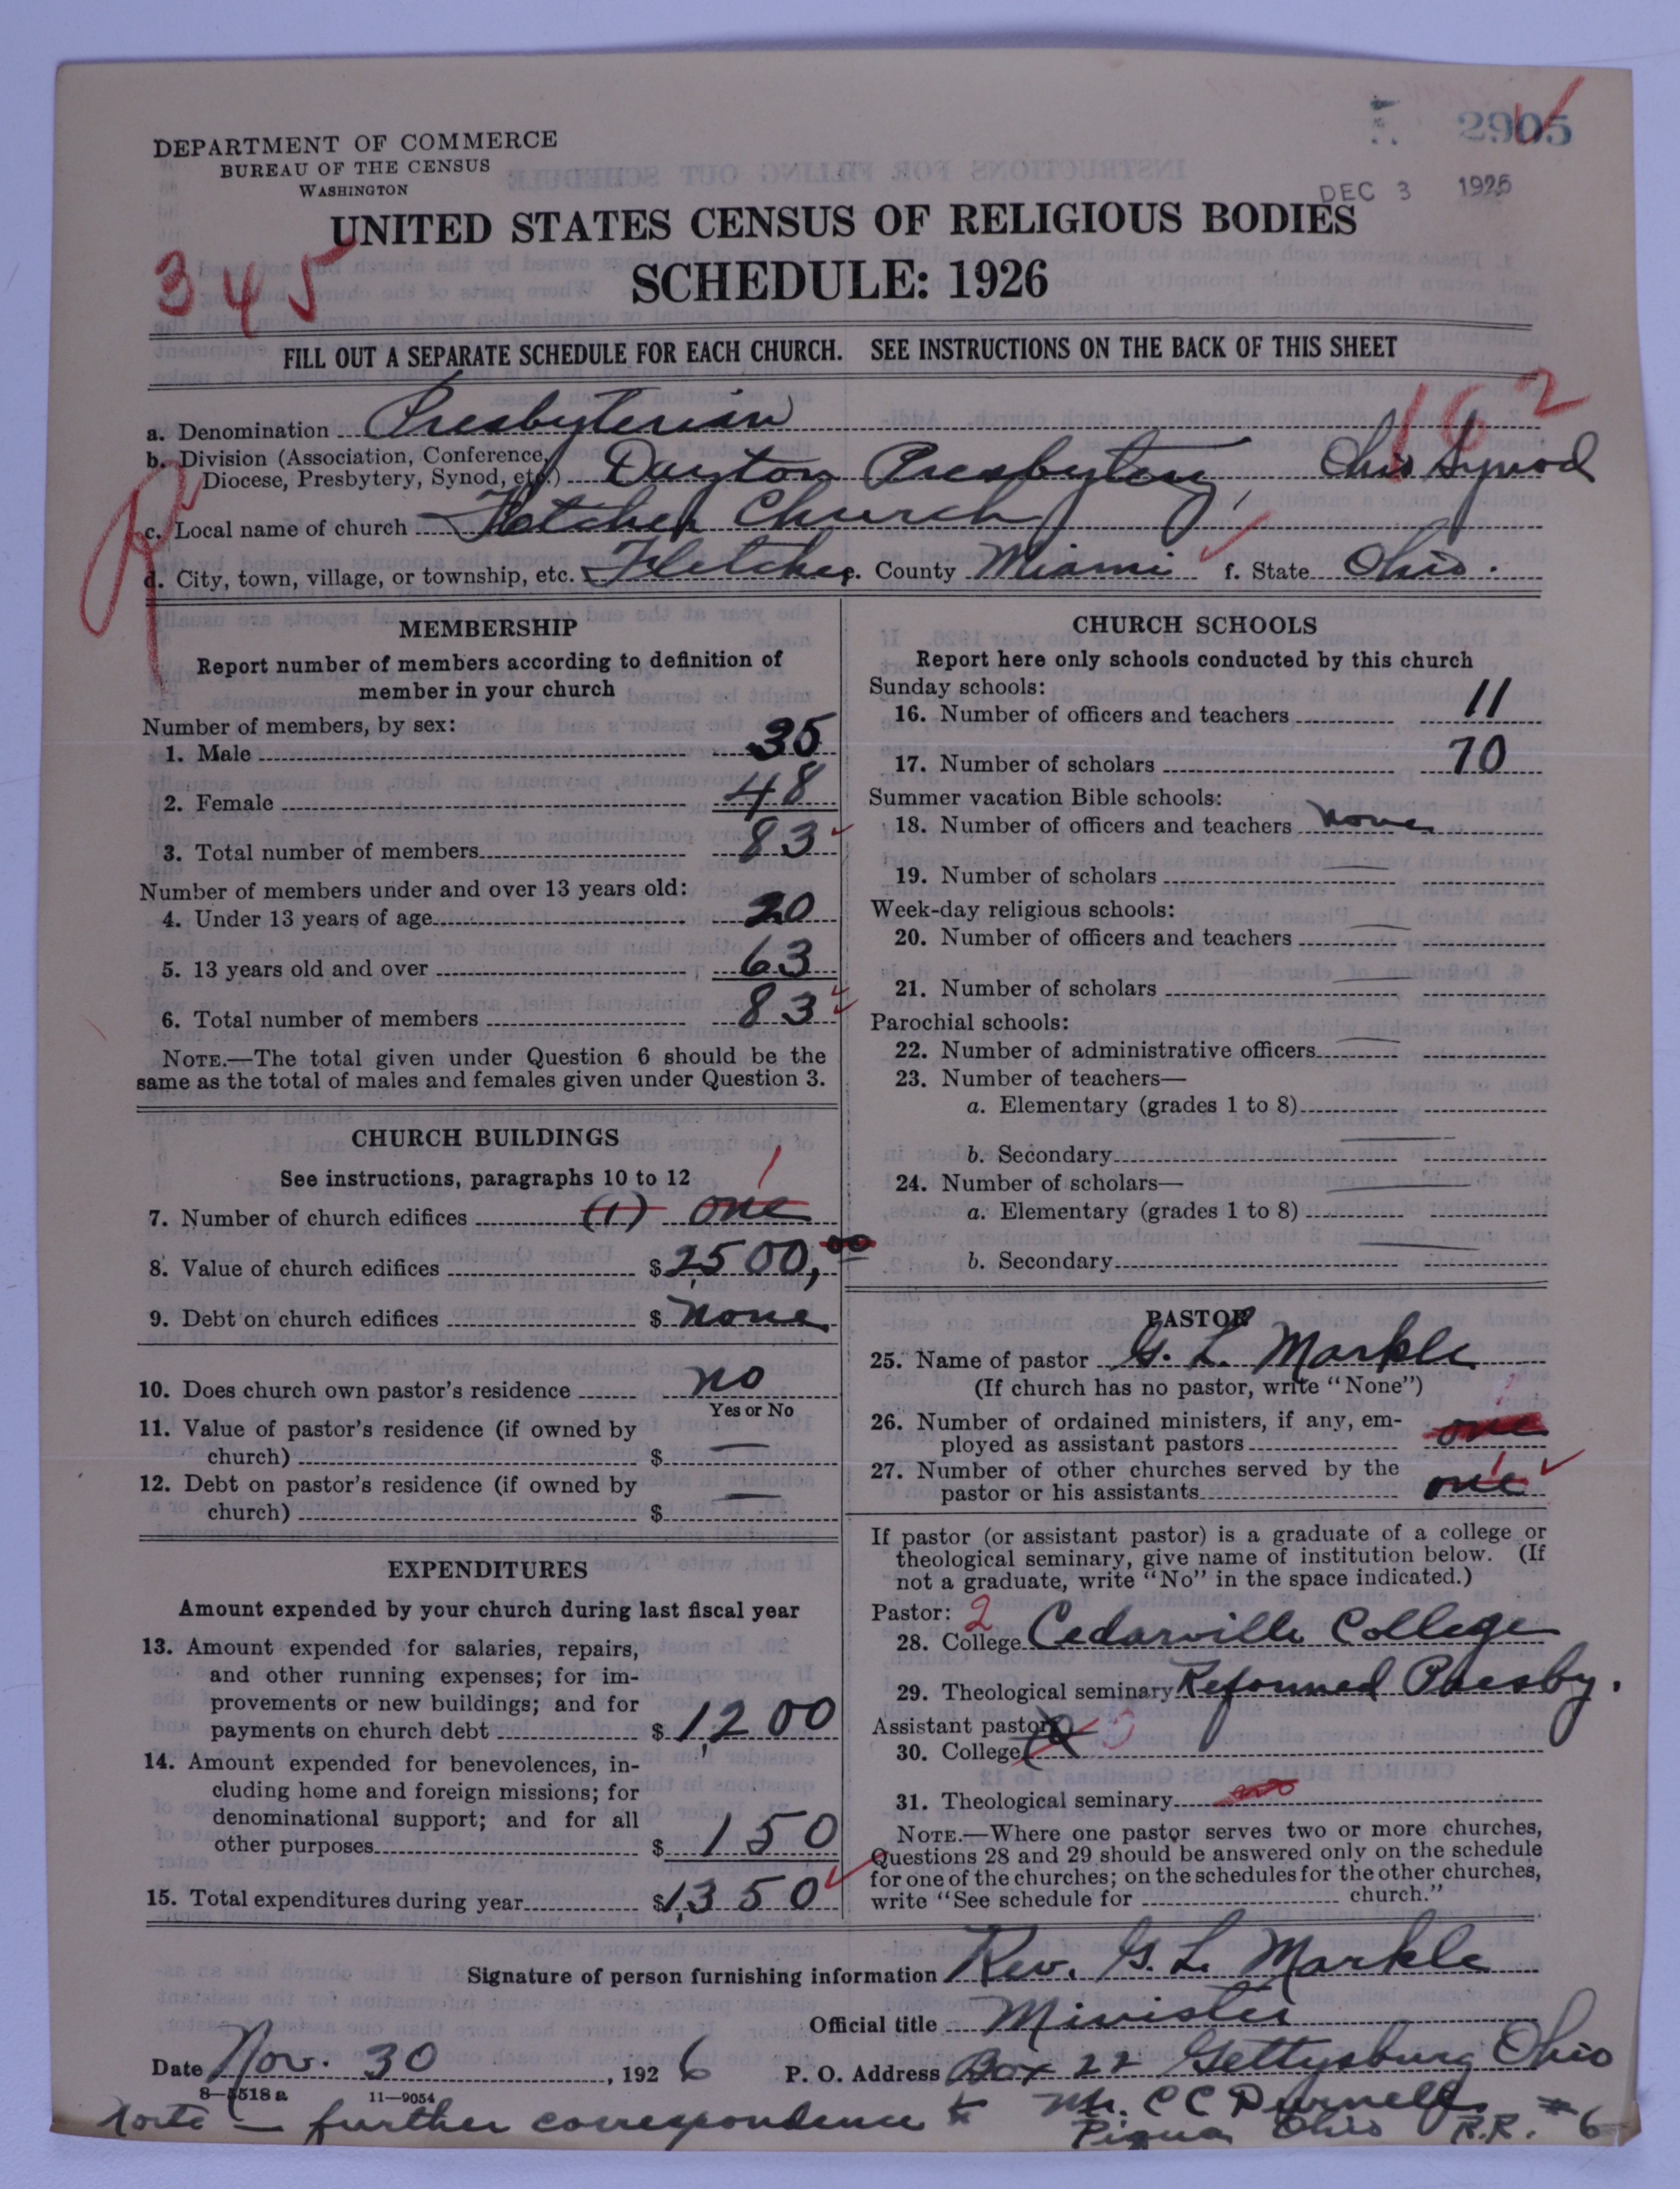 2905
DEPARTMENT OF COMMERCE
BUREAU OF THE CENSUS
WASHINGTON
DEC 3 1926
UNITED STATES CENSUS OF RELIGIOUS BODIES
345
SCHEDULE: 1926
FILL OUT A SEPARATE SCHEDULE FOR EACH CHURCH. SEE INSTRUCTIONS ON THE BACK OF THIS SHEET
162
a. Denomination Presbyterian
b. Division (Association, Conference,
Diocese, Presbytery, Synod, etc.) Dayton Presbytery, Ohio Synod
c. Local name of church Fletcher Church
d. City, town, village, or township, etc. Fletcher e. County Miami f. State Ohio.
MEMBERSHIP
Report number of members according to definition of
member in your church
Number of members, by sex:
1. Male 35
2. Female 48
3. Total number of members 83
Number of members under and over 13 years old:
4. Under 13 years of age 20
5. 13 years old and over 63
6. Total number of members 83
NOTE.—The total given under Question 6 should be the
same as the total of males and females given under Question 3.
CHURCH BUILDINGS
See instructions, paragraphs 10 to 12
1
7. Number of church edifices (1) one
8. Value of church edifices $ 2,500,00
9. Debt on church edifices $ None
10. Does church own pastor's residence no
Yes or No
11. Value of pastor's residence (if owned by
church) $ —
12. Debt on pastor's residence (if owned by
church) $ —
EXPENDITURES
Amount expended by your church during last fiscal year
13. Amount expended for salaries, repairs,
and other running expenses; for im-
provements or new buildings; and for
payments on church debt $ 1,200
14. Amount expended for benevolences, in-
cluding home and foreign missions; for
denominational support; and for all
other purposes $ 150
15. Total expenditures during year $ 1,350
CHURCH SCHOOLS
Report here only schools conducted by this church
Sunday schools:
16. Number of officers and teachers 11
17. Number of scholars 70
Summer vacation Bible schools:
18. Number of officers and teachers None
19. Number of scholars —
Week-day religious schools:
20. Number of officers and teachers —
21. Number of scholars —
Parochial schools:
22. Number of administrative officers —
23. Number of teachers—
a. Elementary (grades 1 to 8)
b. Secondary —
24. Number of scholars—
a. Elementary (grades 1 to 8) —
b. Secondary —
PASTOR
25. Name of pastor G. L. Markle
(If church has no pastor, write "None")
26. Number of ordained ministers, if any, em-
ployed as assistant pastors one
27. Number of other churches served by the
pastor or his assistants one 1
If pastor (or assistant pastor) is a graduate of a college or
theological seminary, give name of institution below. (If
not a graduate, write "No" in the space indicated.)
Pastor: 2
28. College Cedarville College
29. Theological seminary Reformed Presby.
Assistant pastor
30. College
31. Theological seminary
NOTE.—Where one pastor serves two or more churches,
Questions 28 and 29 should be answered only on the schedule
for one of the churches; on the schedules for the other churches,
write "See schedule for church."
Signature of person furnishing information Rev. G. L. Markle
Official title Minister
Date Nov. 30, 1926 P. O. Address Box 22 Gettysburg Ohio
8—5518a 11—9054
Note — further correspondence to Mr. C C Durnell
Piqua Ohio R.R. #6